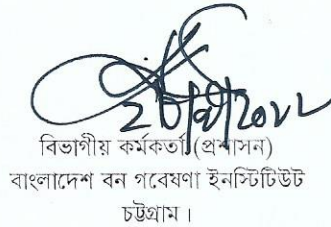 বিভাগীয় কর্মকর্তা (প্রশাসন)
বাংলাদেশ বন গবেষণা ইনস্টিটিউট
চট্টগ্রাম।